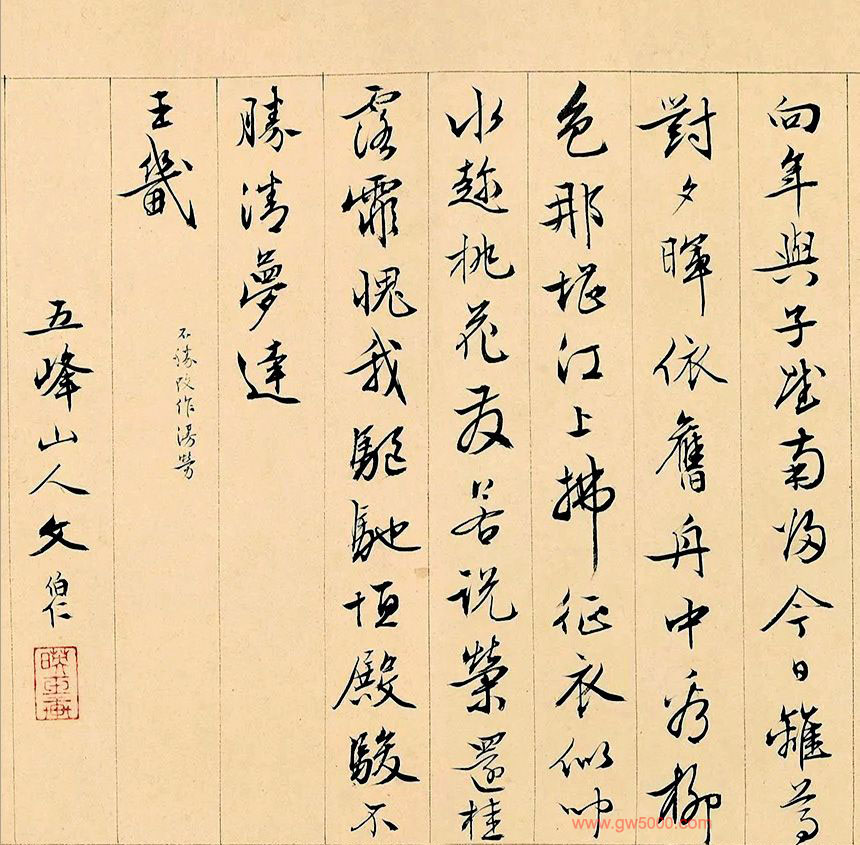 向年與子望南歸今日離尊
對夕暉依舊舟中看柳
色那堪江上拂征衣似
水趁桃花發若說榮還桂
露霏愧我驅馳恒殿駿不
勝清夢達
王畿
不勝改作漫勞
五峰山人文伯仁
www.gw5000.com